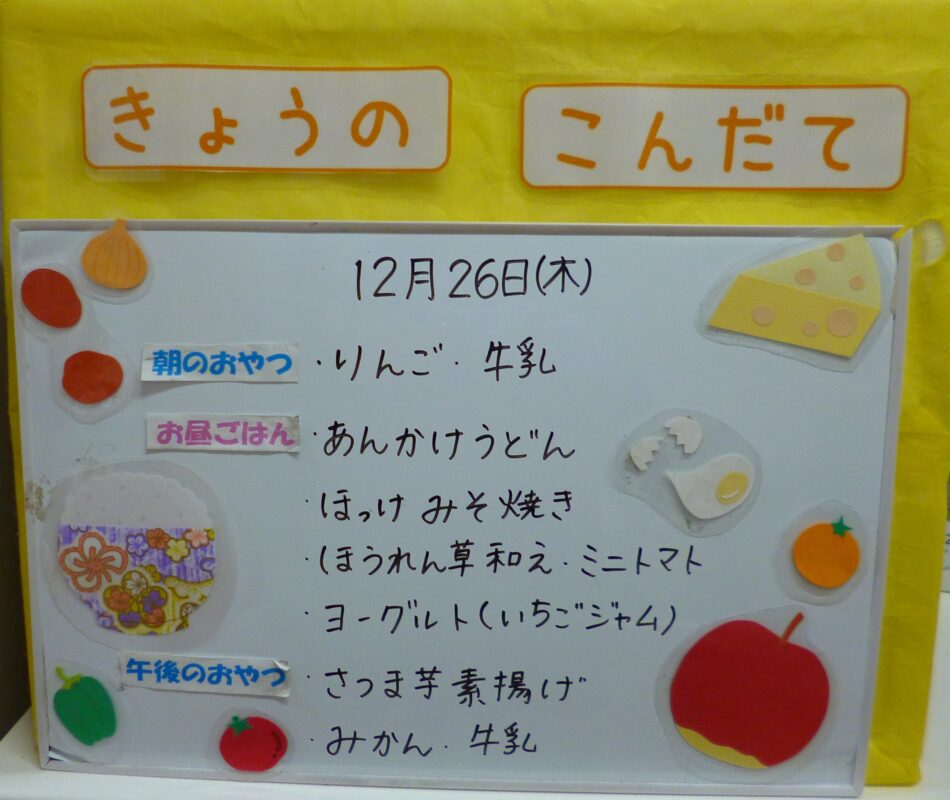 きょうの こんだて
12月26日(木)
朝のおやつ ・りんご・牛乳
お昼ごはん ・あんかけうどん
・ほっけみそ焼き
・ほうれん草和え・ミニトマト
・ヨーグルト(いちごジャム)
午後のおやつ ・さつま芋素揚げ
・みかん・牛乳